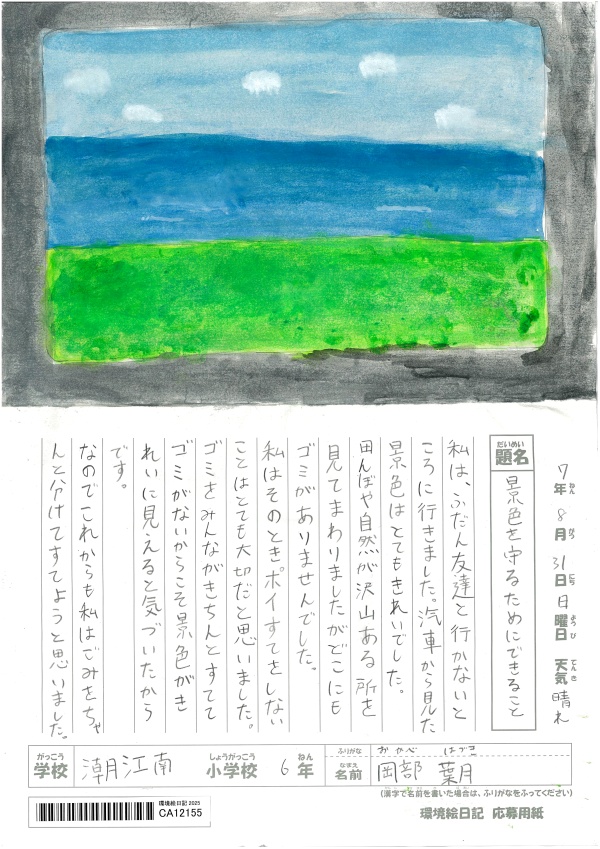 7年 8月 31日 日曜日 天気 晴れ
ねん がつ にち ようび てんき
だいめい
題名
景色を守るためにできること
私は、ふだん友達と行かないと
ころに行きました。汽車から見た
景色はとてもきれいでした。
田んぼや自然が沢山ある所を
見てまわりましたがどこにも
ゴミがありませんでした。
私はそのときポイすてをしない
ことはとても大切だと思いました。
ゴミをみんながきちんとすてて
ゴミがないからこそ景色がき
れいに見えると気づいたから
です。
なのでこれからも私はごみをちゃ
んと分けてすてようと思いました。
がっこう しょうがっこう ねん
学校 潮江南 小学校 6年
ふりがな おかべ はづき
なまえ
名前 岡部 葉月
(漢字で名前を書いた場合は、ふりがなをふってください)
環境絵日記 2025
CA12155
環境絵日記 応募用紙